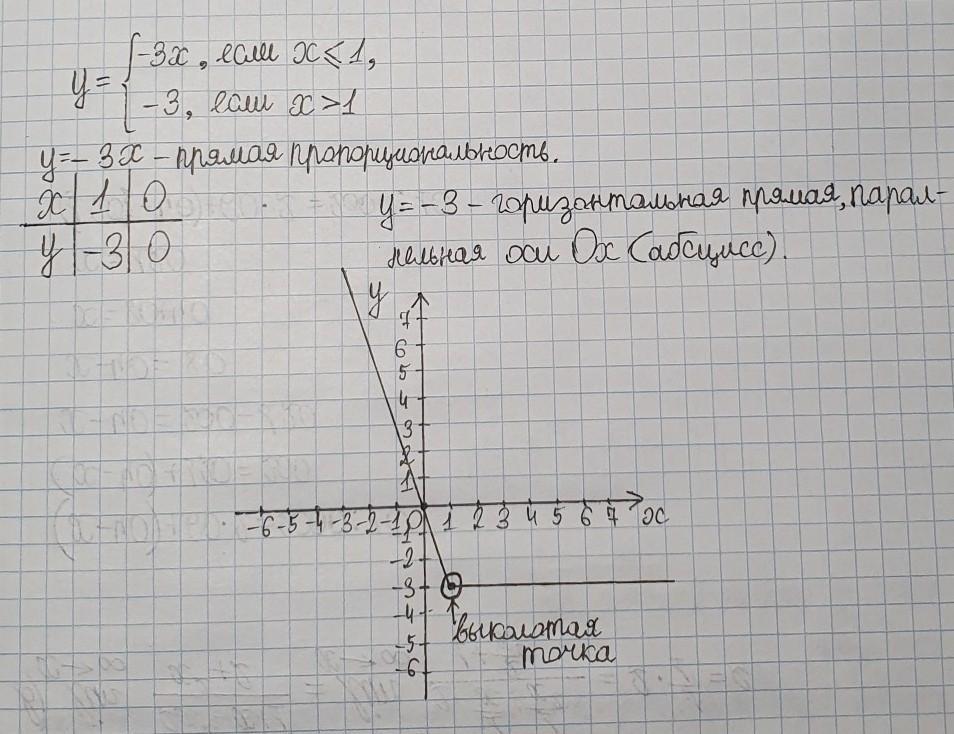 y = { -3x, если x ⩽ 1,
-3, если x > 1
y = -3x - прямая пропорциональность.
x | 1 | 0
y | -3 | 0
y = -3 - горизонтальная прямая, парал-
лельная оси Ox (абсцисс).
y
7
6
5
4
3
2
1
-6 -5 -4 -3 -2 -1 0 1 2 3 4 5 6 7 x
-1
-2
-3
-4
-5
-6
выколотая
точка